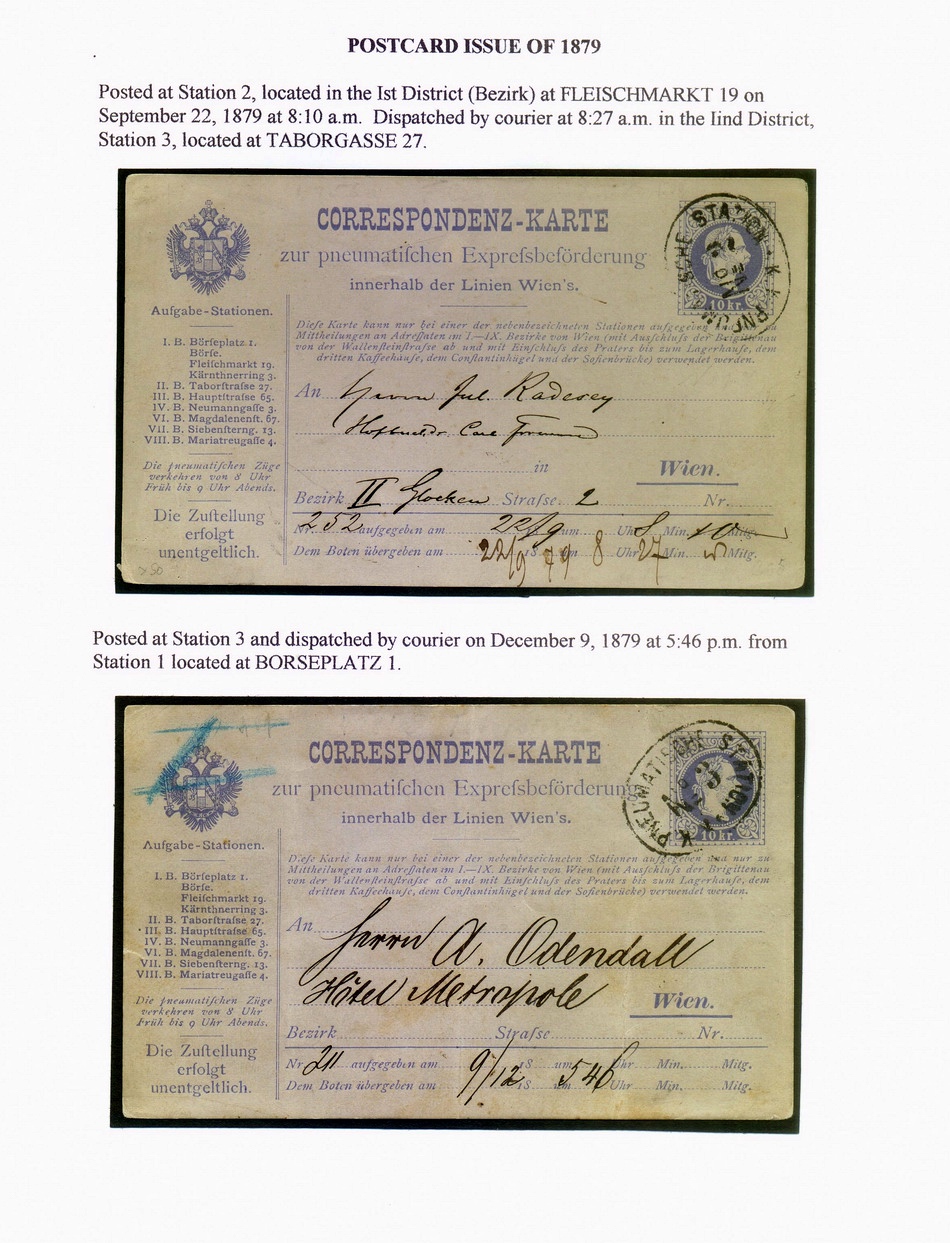 POSTCARD ISSUE OF 1879
Posted at Station 2, located in the Ist District (Bezirk) at FLEISCHMARKT 19 on
September 22, 1879 at 8:10 a.m. Dispatched by courier at 8:27 a.m. in the Iind District,
Station 3, located at TABORGASSE 27.
CORRESPONDENZ-KARTE
zur pneumatiſchen Expreſsbeförderung
innerhalb der Linien Wien's.
STATION
10 kr.
Aufgabe-Stationen.
I. B. Börſeplatz 1.
Börſe.
Fleiſchmarkt 19.
Kärnthnerring 3.
II. B. Taborſtraſse 27.
III. B. Hauptſtraſse 65.
IV. B. Neumanngaſſe 3.
VI. B. Magdalenenſt. 67.
VII. B. Siebenſterng. 13.
VIII. B. Mariatreugaſſe 4.
Die pneumatiſchen Züge
verkehren von 8 Uhr
Früh bis 9 Uhr Abends.
Die Zuſtellung
erfolgt
unentgeltlich.
Dieſe Karte kann nur bei einer der nebenbezeichneten Stationen aufgegeben und nur zu
Mittheilungen an Adreſſaten im I.—IX. Bezirke von Wien (mit Ausſchluſs der Brigittenau
von der Wallenſteinſtraſse ab und mit Einſchluſs des Praters bis zum Lagerhauſe, dem
dritten Kaffeehauſe, dem Conſtantinhügel und der Sofienbrücke) verwendet werden.
An Herrn Jul. Radesey
Carl
in Wien.
Bezirk II Glocken Straſse 2 Nr.
Nr. 252 aufgegeben am 22/9 um Uhr 8 Min. 10 Mitg.
Dem Boten übergeben am 22/9 18 79 um 8 Uhr 27 Min. Mitg.
Posted at Station 3 and dispatched by courier on December 9, 1879 at 5:46 p.m. from
Station 1 located at BORSEPLATZ 1.
CORRESPONDENZ-KARTE
zur pneumatiſchen Expreſsbeförderung
innerhalb der Linien Wien's.
K. K. PNEUMATISCHE STATION
3
10 kr.
Aufgabe-Stationen.
I. B. Börſeplatz 1.
Börſe.
Fleiſchmarkt 19.
Kärnthnerring 3.
II. B. Taborſtraſse 27.
III. B. Hauptſtraſse 65.
IV. B. Neumanngaſſe 3.
VI. B. Magdalenenſt. 67.
VII. B. Siebenſterng. 13.
VIII. B. Mariatreugaſſe 4.
Die pneumatiſchen Züge
verkehren von 8 Uhr
Früh bis 9 Uhr Abends.
Die Zuſtellung
erfolgt
unentgeltlich.
Dieſe Karte kann nur bei einer der nebenbezeichneten Stationen aufgegeben und nur zu
Mittheilungen an Adreſſaten im I.—IX. Bezirke von Wien (mit Ausſchluſs der Brigittenau
von der Wallenſteinſtraſse ab und mit Einſchluſs des Praters bis zum Lagerhauſe, dem
dritten Kaffeehauſe, dem Conſtantinhügel und der Sofienbrücke) verwendet werden.
An Herrn A. Odendall
Hôtel Metropole Wien.
Bezirk Straſse Nr.
Nr. 211 aufgegeben am 18 um Uhr Min. Mitg.
Dem Boten übergeben am 9/12 18 um 5 46 Uhr Min. Mitg.